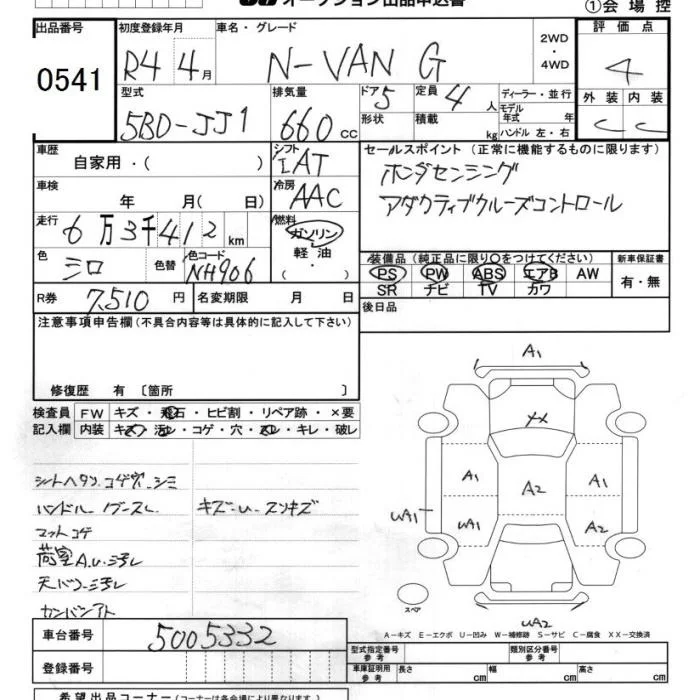 オークション出品申込書
①会場控
出品番号
0541
初度登録年月
R4 4月
車名・グレード
N-VAN G
2WD
・
4WD
評価点
4
外装 内装
C C
型式
5BD-JJ1
排気量
660 cc
ドア 5
形状
定員 4 人
積載 kg
ディーラー・並行
モデル年式 年
ハンドル 左・右
車歴
自家用・( )
シフト
IAT
冷房
AAC
車検
年 月( 日)
走行
6万3千412 km
燃料
ガソリン
・
軽油
( ・ )
色
シロ
色替
色コード
NH906
R券 7,510 円
名変期限 月 日
セールスポイント (正常に機能するものに限ります)
ホンダセンシング
アダクティブクルーズコントロール
装備品 (純正品に限り○をつけてください)
新車保証書
PS PW ABS エアB AW
SR ナビ TV カワ
有・無
後日品
注意事項申告欄 (不具合内容等は具体的に記入して下さい)
修復歴 有 〔箇所 〕
検査員記入欄
FW キズ・飛石・ヒビ割・リペア跡・×要
内装 キズ・汚レ・コゲ・穴・スレ・キレ・破レ
シートヘタリ.コゲ穴.シミ
ハンドル
キズ-U-スリキズ
マットコゲ
荷室A.U.ヨゴレ
天バリ-ヨゴレ
カンバンアト
A1
A1
A1
A2
UA1
UA1
A2
UA2
スペア
A-キズ E-エクボ U-凹み W-補修跡 S-サビ C-腐食 XX-交換済
車台番号
5005332
登録番号
型式指定番号
参考
類別区分番号
参考
車庫証明用
参考
長さ cm
幅 cm
高さ cm
希望出品コーナー (コーナーは各会場により異なります。)